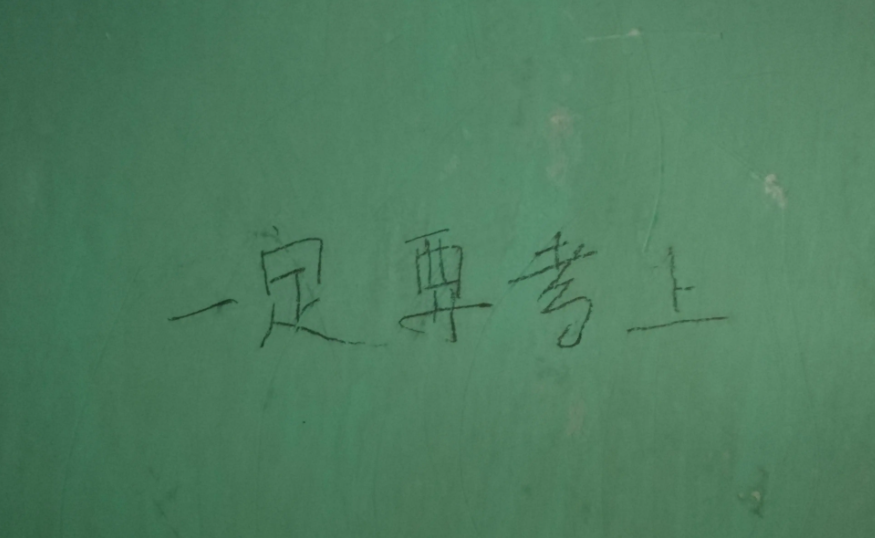 一定要考上